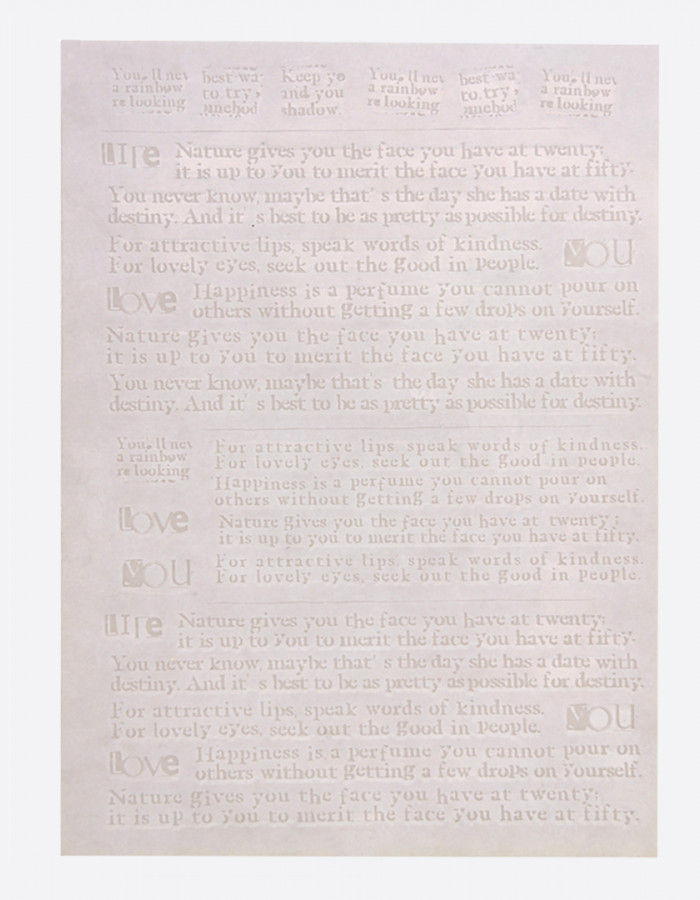 You, ll nev best wa Keep yo You, ll nev best wa You, ll nev
a rainbow to try, and you a rainbow to try, a rainbow
re looking unebod shadow. re looking unebod re looking
LIfe Nature gives you the face you have at twenty;
it is up to you to merit the face you have at fifty.
You never know, maybe that' s the day she has a date with
destiny. And it' s best to be as pretty as possible for destiny.
For attractive lips, speak words of kindness.
For lovely eyes, seek out the good in people. You
Love Happiness is a perfume you cannot pour on
others without getting a few drops on yourself.
Nature gives you the face you have at twenty;
it is up to you to merit the face you have at fifty.
You never know, maybe that's the day she has a date with
destiny. And it' s best to be as pretty as possible for destiny.
You, ll nev
a rainbow
re looking
For attractive lips, speak words of kindness.
For lovely eyes, seek out the good in people.
Happiness is a perfume you cannot pour on
others without getting a few drops on yourself.
Love Nature gives you the face you have at twenty;
it is up to you to merit the face you have at fifty.
You For attractive lips, speak words of kindness.
For lovely eyes, seek out the good in people.
LIfe Nature gives you the face you have at twenty;
it is up to you to merit the face you have at fifty.
You never know, maybe that' s the day she has a date with
destiny. And it' s best to be as pretty as possible for destiny.
For attractive lips, speak words of kindness.
For lovely eyes, seek out the good in people. You
Love Happiness is a perfume you cannot pour on
others without getting a few drops on yourself.
Nature gives you the face you have at twenty;
it is up to you to merit the face you have at fifty.